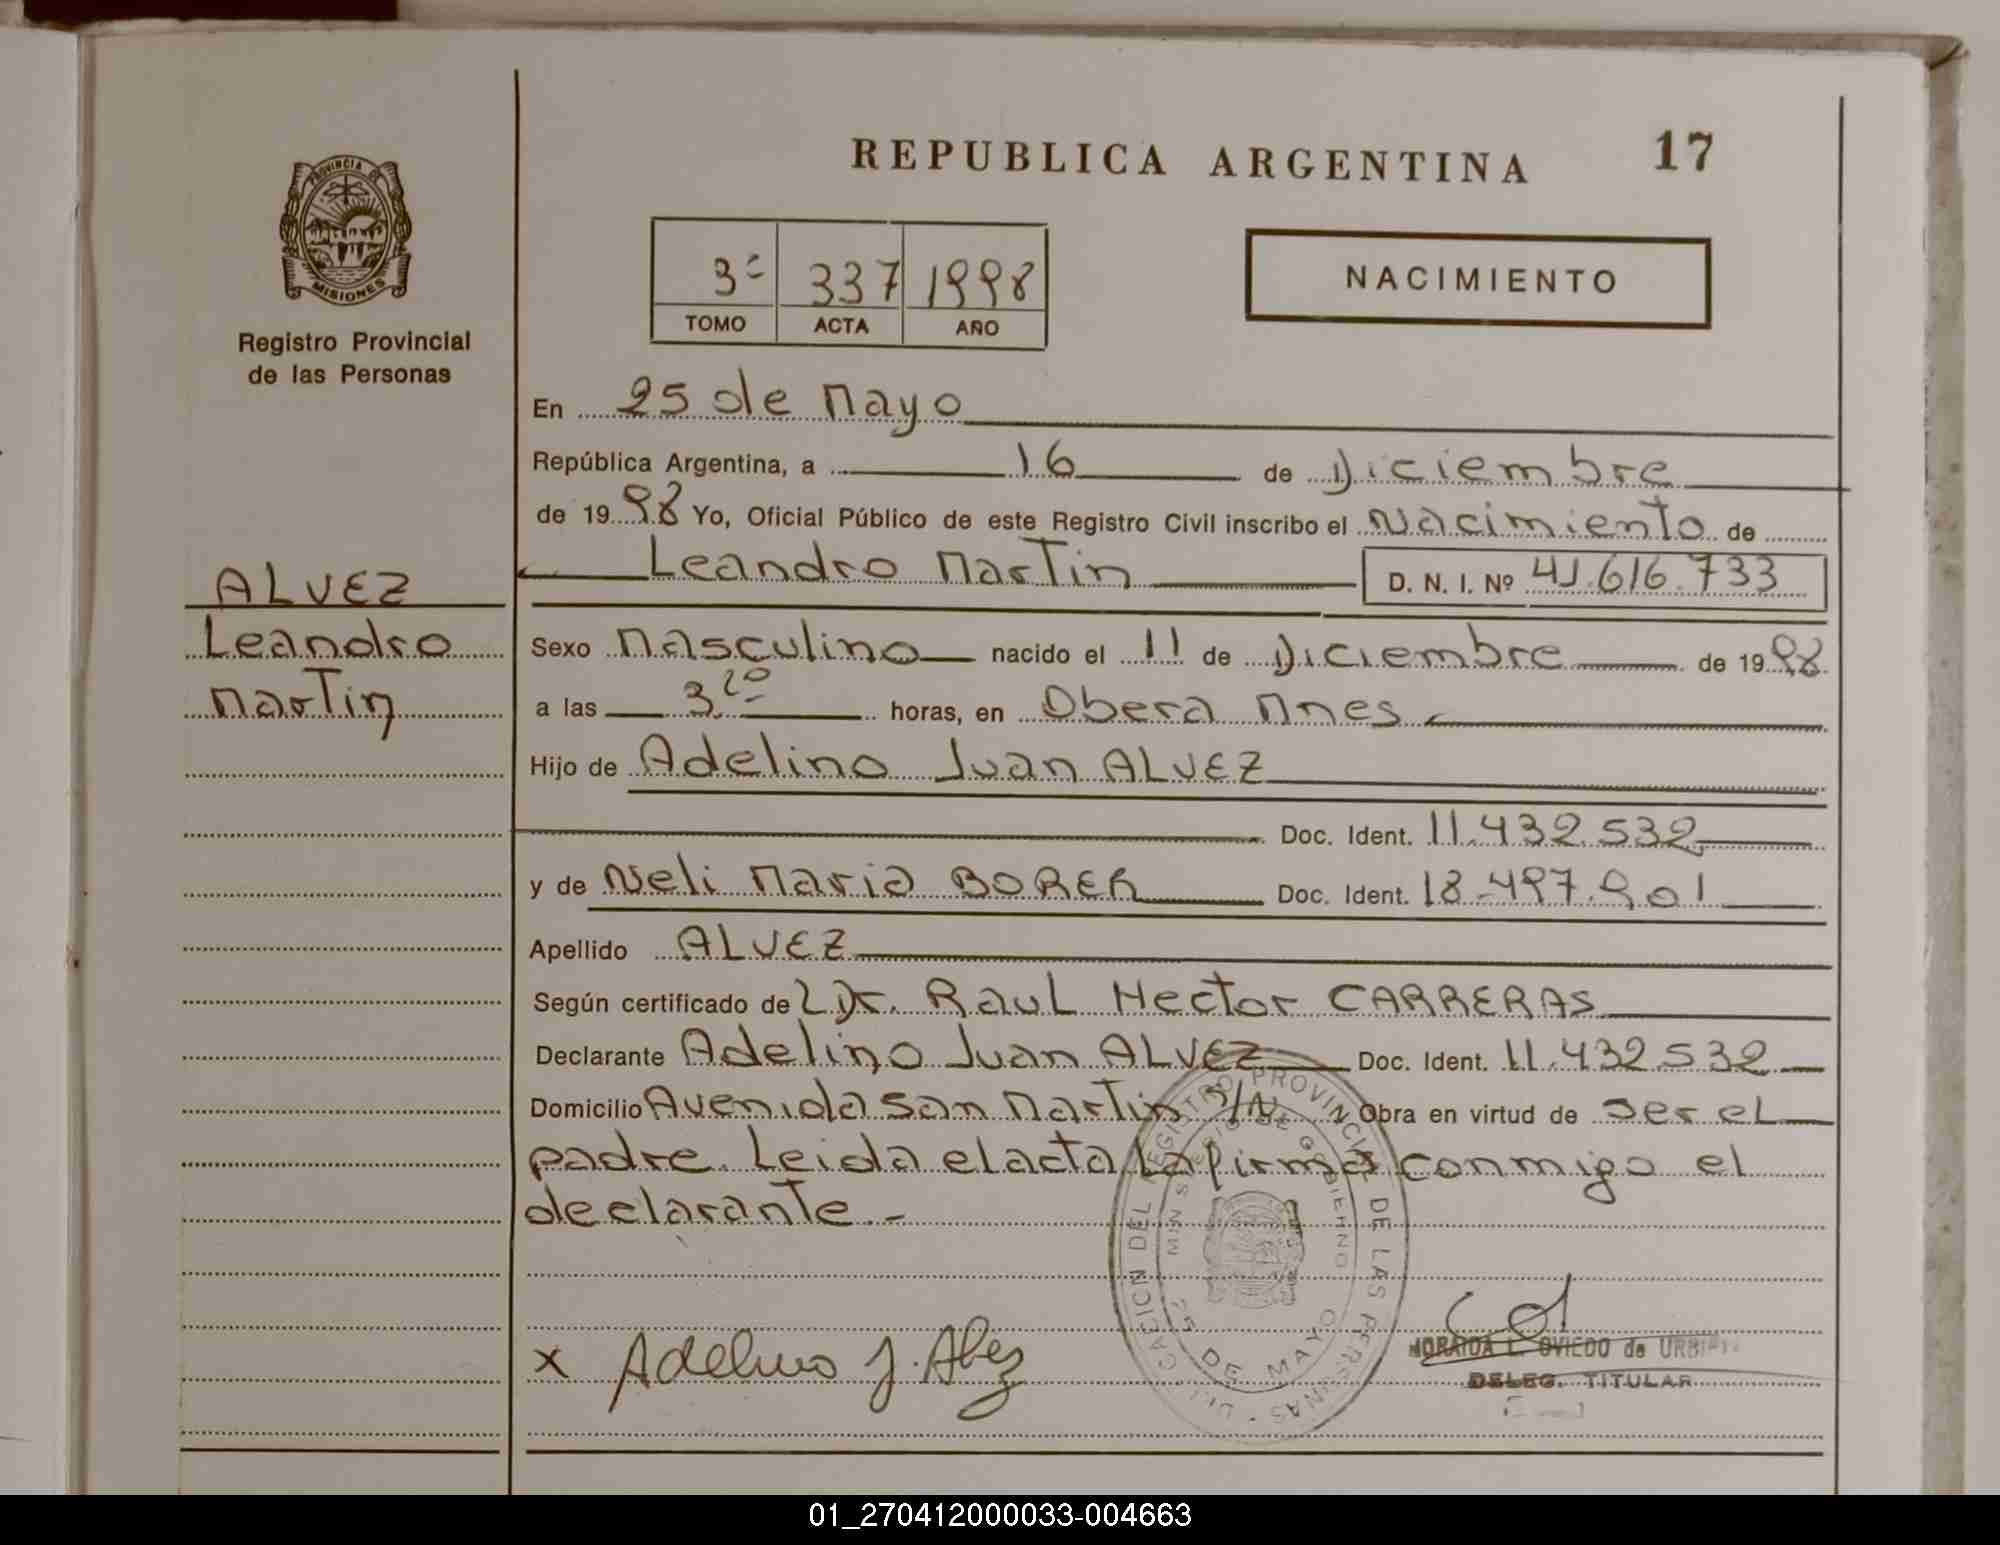 REPUBLICA ARGENTINA 17
PROVINCIA DE
MISIONES
Registro Provincial
de las Personas
3º 337 1998
TOMO ACTA AÑO
NACIMIENTO
En 25 de Mayo
República Argentina, a 16 de Diciembre
de 1998 Yo, Oficial Público de este Registro Civil inscribo el Nacimiento de
Leandro Martin D. N. I. Nº 41.616.733
ALVEZ
Leandro
Martin
Sexo Masculino nacido el 11 de Diciembre de 1998
a las 3 20 horas, en Obera Mnes
Hijo de Adelino Juan ALVEZ
Doc. Ident. 11.432.532
y de Neli Maria BORER Doc. Ident. 18.497.901
Apellido ALVEZ
Según certificado de Dr. Raul Hector CARRERAS
Declarante Adelino Juan ALVEZ Doc. Ident. 11.432.532
Domicilio Avenida San Martin S/N Obra en virtud de ser el
padre. Leida el acta la firma conmigo el
declarante.-
REGISTRO PROVINCIAL DE LAS PERSONAS
MINISTERIO DE GOBIERNO
25 DE MAYO
x Adelino J. Alvez
L. OVIEDO de
DELEG. TITULAR
01_270412000033-004663